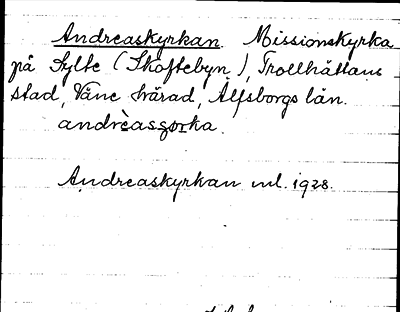 Andreaskyrkan. Missionskyrka
på Sylte (Skoftebyn), Trollhättans
stad, Väne härad, Älfsborgs län.
andrèasɟørka.

Andreaskyrkan inl. 1928.